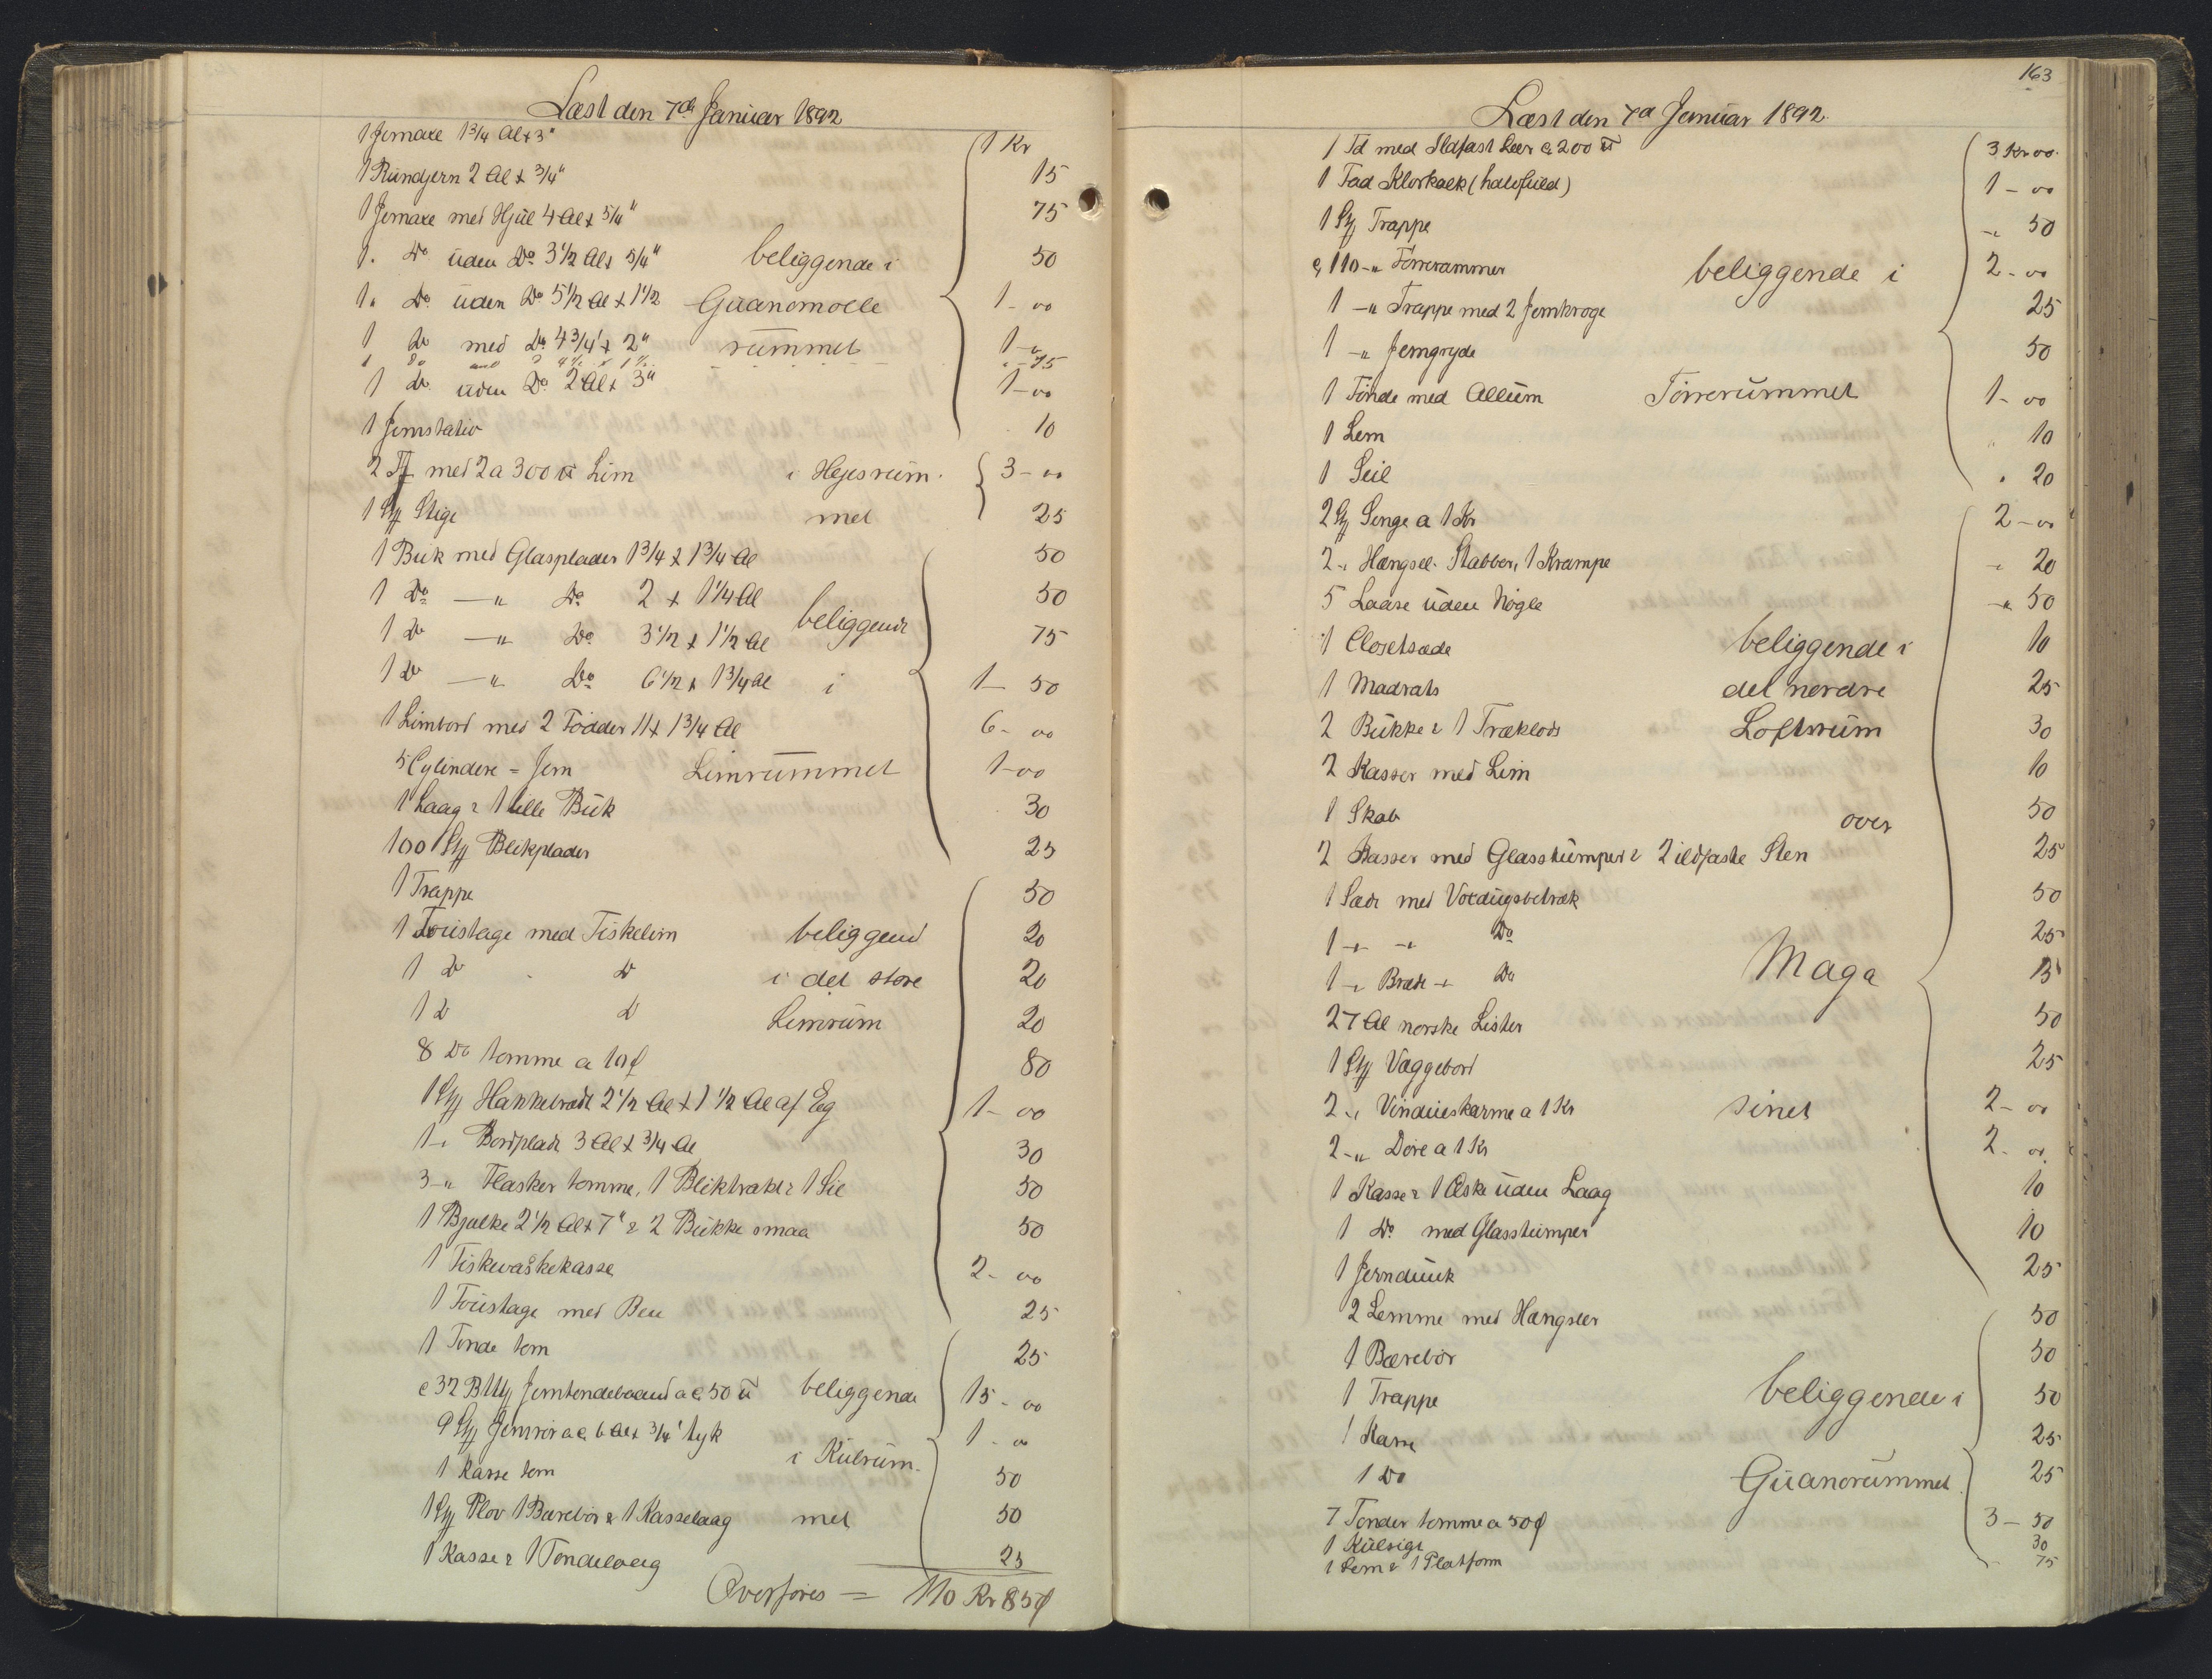 Læst den 7de Januar 1892
1 Jernaxe 1 3/4 Al x 3" 1 Kr
1 Rundjern 2 Al x 3/4" 15
1 Jernaxe med Hjul 4 Al x 5/4" 75
1. Do uden Do 3 1/2 Al x 5/4" beliggende i 50
1. Do uden Do 5 1/2 Al x 1 1/2 Guanomølle 1-00
1 Do med Do 4 3/4 x 2" rummet 1-"
1 Do 4 1/2 x 1 1/2 "-75
1 Do uden Do 2 Al x 3" 1-00
1 Jernstativ 10
2 med 2 a 300 ℔ Lim i Hejserum- 3-00
1 Stk Stige met 25
1 Buk med Glasplader 1 3/4 x 1 3/4 Al 50
1 Do -" Do 2 x 1 1/4 Al 50
1 Do -" Do 3 1/2 x 1 1/2 Al beliggende 75
1 Do -" Do 6 1/2 x 1 3/4 Al i 1-50
1 Limbord med 2 Födder 11 x 1 3/4 Al 6-00
5 Cylindere = Jern Limrummet 1-00
1 Laag & 1 lille Buk 30
100 Stk Blikplader 25
1 Trappe 50
1 Foustage med Fiskelim beliggend 20
1 Do Do i det store 20
1 D D Limrum 20
8 Do tomme a 10 ø 80
1 Stk Hakkebrædt 2 1/2 Al x 1 1/2 Al af Eg 1-00
1-" Bordplade 3 Al x 3/4 Al 30
3-" Flasker tomme, 1 Bliktragt & 1 Sie 50
1 Bjælke 2 1/2 Al x 7" & 2 Bukke smaa 50
1 Fiskevaskekasse 2-00
1 Foustage med Ben 25
1 Tønde tom 25
c 32 Jerntøndebaand a c 50 ℔ beliggende 15-00
9 Stk Jernrör a c 6 Al x 3/4" tyk 1-00
1 Kasse tom i Kulrum- 50
1 Stk Plov 1 Bærebör & 1 Kasselaag met 50
1 Kasse & 1 Tøndelaag 25
Overføres = 110 Kr 85 ø
163
Læst den 7d Januar 1892.
1 Td med Ildfast Leer c 200 ℔ 3 Kr 00
1 Fad Klorkalk (halvfuld) 1-00
1 Stk Trappe -" 50
c 110-" Törrerammer beliggende i 2-00
1 -" Trappe med 2 Jernkroge 25
1 -" Jerngryde 50
1 Tönde med Allum Törrerummet 1-00
1 Lem " 10
1 Seil " 20
2 Stk Senge a 1 Kr 2-00
2-" Hængsel- Stabber, 1 Krampe -" 20
5 Laase uden Nögle -" 50
1 Closetsæde beliggende i 10
1 Madrats det nordre 25
2 Bukke & 1 Træklods Loftsrum 30
2 Kasser med Lim 10
1 Skab over 50
2 Kasser med Glasstumper & 2 ildfaste Sten 25
1 Sæde med Voxdugsbetræk 50
1 -" -" Do 25
1 -" Bræt -" Do Maga 15
27 Al norske Lister 50
1 Stk Væggebord 25
2-" Vindueskarme a 1 Kr sinet 2-00
2-" Döre a 1 Kr 2-00
1 Kasse & 1 Æske uden Laag 10
1 Do med Glasstumper 10
1 Jerndunk 25
2 Lemme med Hængsler 50
1 Bærebör 50
1 Trappe beliggende i 50
1 Kasse 25
1 Do Guanorummet 25
7 Tønder tomme a 50 ø 3-50
1 Kulsigt 30
1 Lem & 1 Platform 75